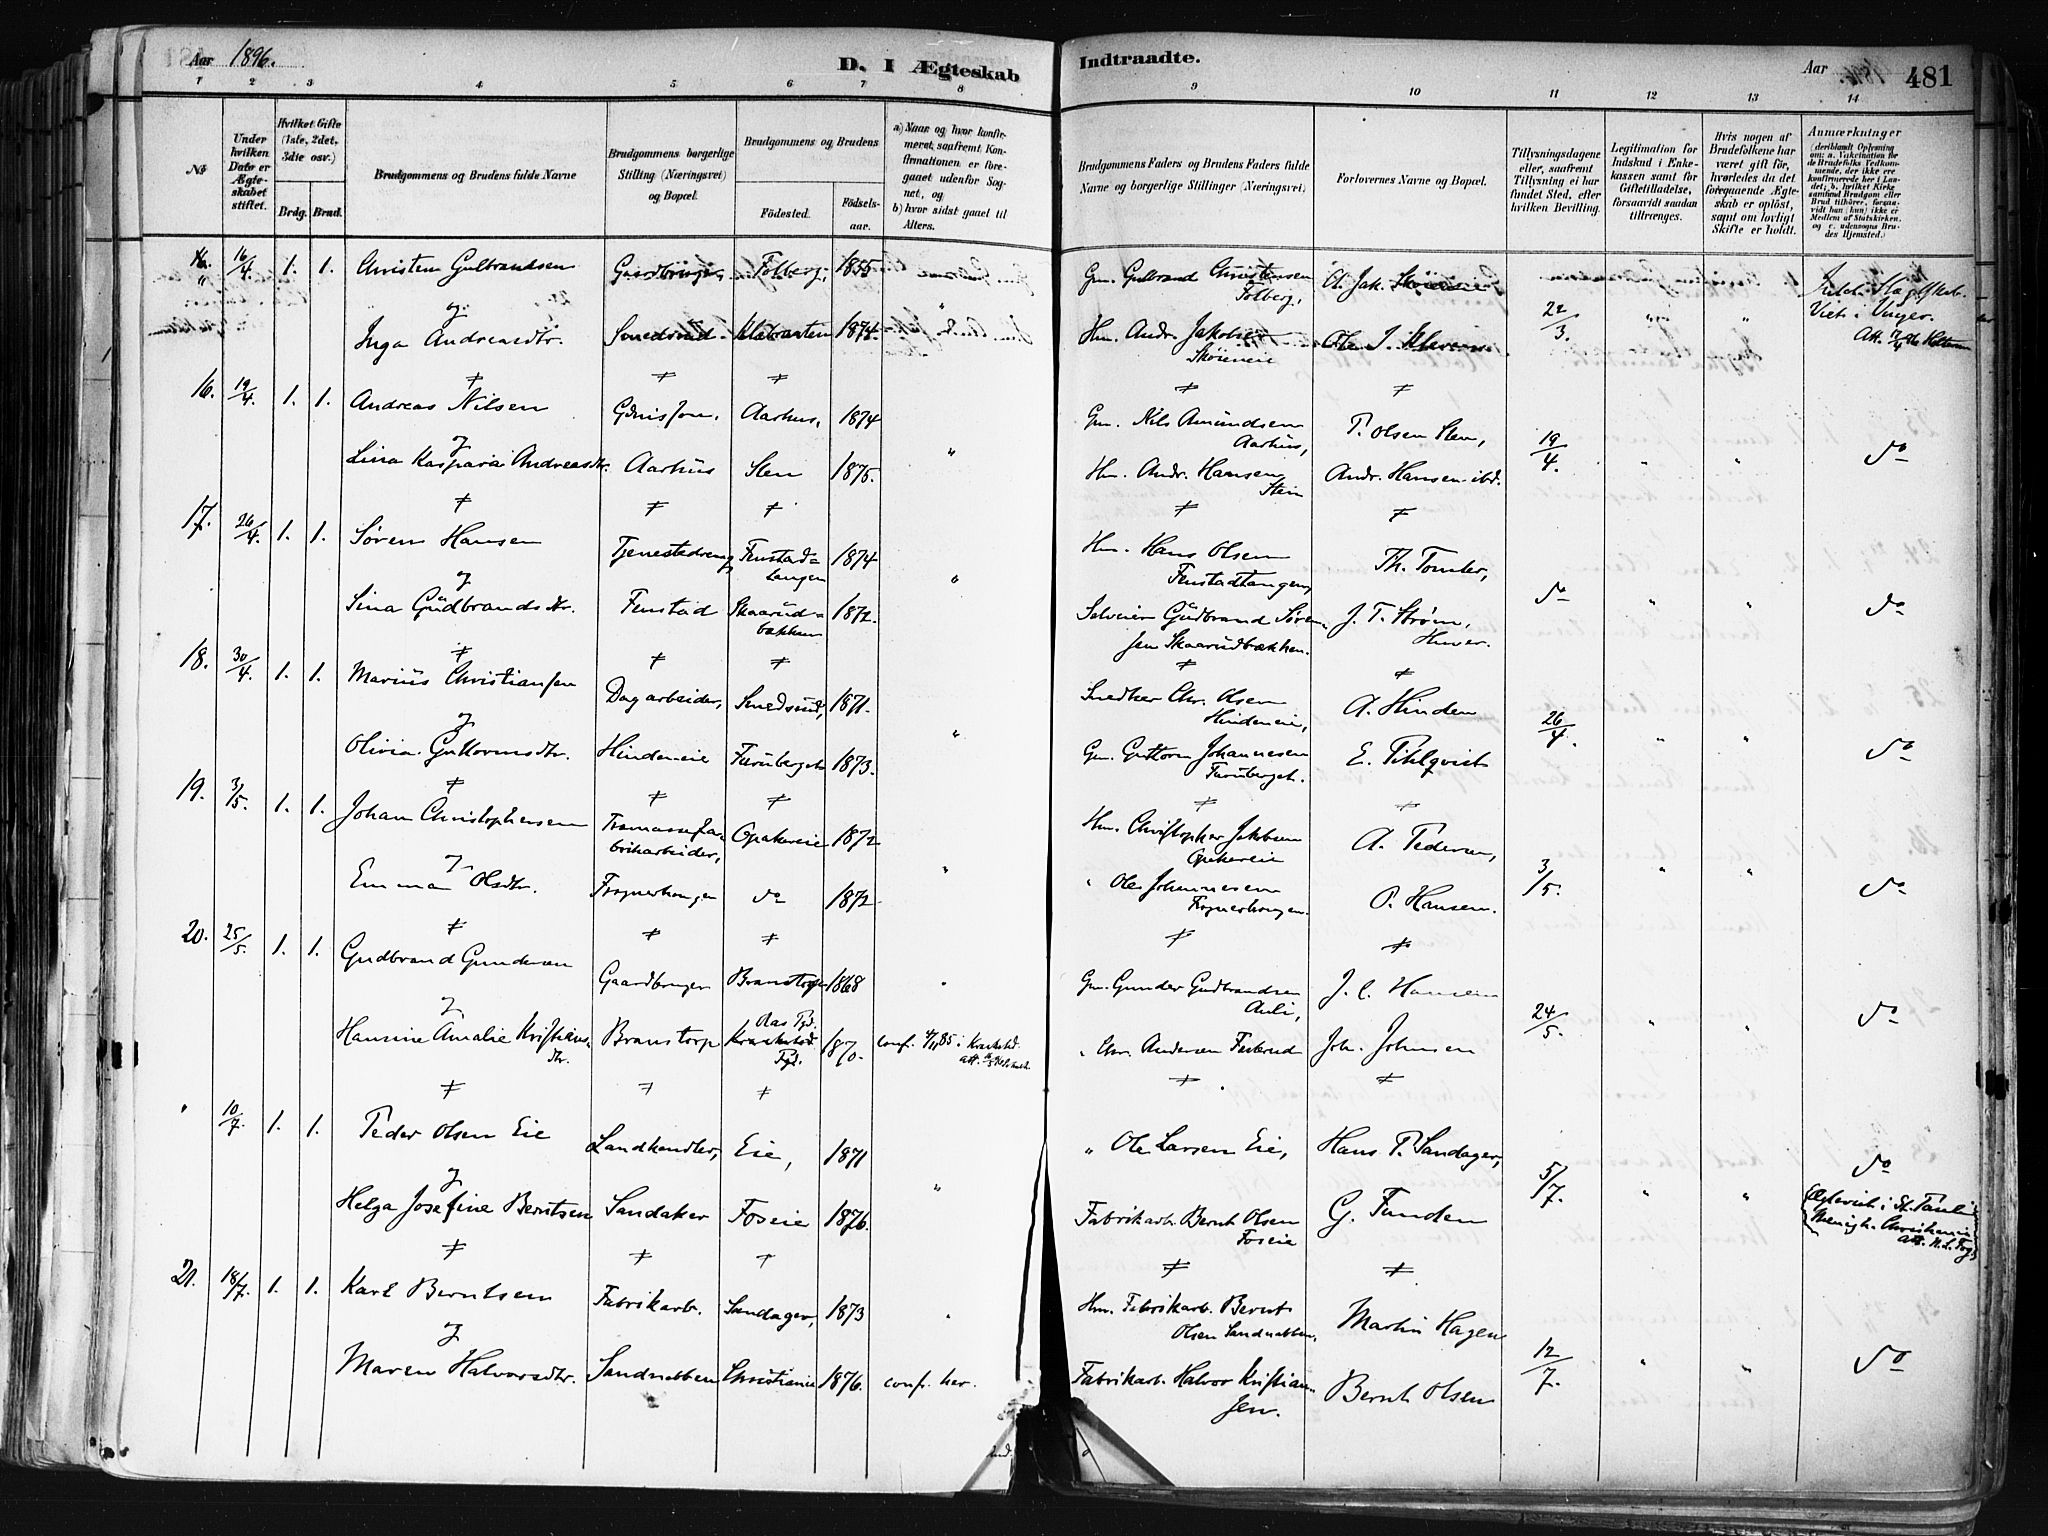 Aar 1896.
D. I Ægteskab
Indtraadte.
Aar 1896.
481
1 2 3 4 5 6 7 8 9 10 11 12 13 14
No
Under hvilken Dato er Ægteskabet stiftet.
Hvilket Gifte (1ste, 2det, 3die osv.)
Brdg. Brud.
Brudgommens og Brudens fulde Navne
Brudgommens borgerlige Stilling (Næringsvei) og Bopæl.
Brudgommens og Brudens
Fødested.
Fødselsaar.
a) Naar og hvor konfirmeret, saafremt Konfirmationen er foregaaet udenfor Sognet, og
b) hvor sidst gaaet til Alters.
Brudgommens Faders og Brudens Faders fulde Navne og borgerlige Stillinger (Næringsvei)
Forlovernes Navne og Bopæl.
Tillysningsdagene eller, saafremt Tillysning ei har fundet Sted, efter hvilken Bevilling.
Legitimation for Indskud i Enkekassen samt for Giftetilladelse, forsaavidt saadan tiltrænges.
Hvis nogen af Brudefolkene har været gift før, hvorledes da det foregaaende Ægteskab er opløst, samt om lovligt Skifte er holdt.
Anmærkninger
(deriblandt Oplysning om: a. Vaksination for de Brudefolks Vedkommende, der ikke ere konfirmerede her i Landet; b. hvilket Kirkesamfund Brudgom eller Brud tilhører, forsaavidt han (hun) ikke er Medlem af Statskirken, og c. udensogns Brudes Hjemsted.)
16/4 1. 1. Christen Gulbrandsen Gaardbruger Folberg, 1855 Gm. Gulbrand Christensen Folberg, O. Jak. Skøiereie
og
Inga Andreasdtr. Smedsrud 1874. Hm. Andr. Jakobsen Skøiereie 22/3. " " Viet i Vinger.
≠ ≠ ≠ ≠ ≠
16. 19/4. 1. 1. Andreas Nilsen Aarhus, 1874 Gm. Nils Amundsen Aarhus, P. Olsen Sten,
og
Lina Kaspara Andreasdtr. Aarhus Sten 1875. " Hm. Andr. Hansen Stein Andr. Hansen ibd. 19/4. " " do
≠ ≠ ≠ ≠ ≠
17. 26/4. 1. 1. Søren Hansen Tjenestedreng Fenstadtangen 1874 Hm. Hans Olsen Fenstadtangen Th. Tomter,
og
Sina Gudbrandsdtr. Fenstad Skaarudbakken 1872. " Selveier Gudbrand Sørensen Skaarudbækken. J. T. Strøm, Huver. do " " do
≠ ≠ ≠ ≠ ≠
18. 30/4 1. 1. Marius Christiansen Dagarbeider, Smedsrud, 1871. Snedker Chr. Olsen Hindeneie, A. Hinden
og
Olivia Guttormsdtr. Hindeneie Furuberget 1873. " Gm. Guttorm Johannesen Furuberget. E. Pihlqvist 26/4. " " do
≠ ≠ ≠ ≠ ≠
19. 3/5. 1. 1. Johan Christophersen Træmassefabrikarbeider, Opakereie 1872 Hm. Christopher Jakobsen Opakereie A. Pedersen,
og
Emma Olsdtr. Frognerhougen do 1872 " " Ole Johannesen Frognerhougen. P. Hansen. 3/5. " " do
≠ ≠ ≠ ≠ ≠
20. 25/5. 1. 1. Gudbrand Gundersen Gaardbruger Branstorp 1868 " Gm. Gunder Gudbrandsen Auli, J. C. Hansen
og
Hansine Amalie Kristiansdtr. Branstorp Kraakstad Pgd. 1870. conf. 4/11 85 i Kraakstd. " Chr. Andersen Joh. Johnsen 24/5. " " do
≠ ≠ ≠ ≠ ≠
" 10/7. 1. 1. Peder Olsen Eie Landhandler, Eie, 1871 " Ole Larsen Eie, Hans P. Sandager,
og
Helga Josefine Berntsen Sandaker Foseie 1876. " Fabrikarb. Bernt Olsen Foseie G. Funden 5/7. " " do
Ægteviet i St. Pauli Menigh. Christiania
≠ ≠ ≠ ≠ ≠
21. 18/7. 1. 1. Karl Berntsen Fabrikarb. Sandager, 1873 " Hm. Fabrikarb. Bernt Olsen Sandnebben, Martin Hagen
og
Maren Halvorsdtr. Sandnebben Christiania 1876. conf. her. Fabrikarb. Halvor Kristiansen. Bernt Olsen 12/7. " " do